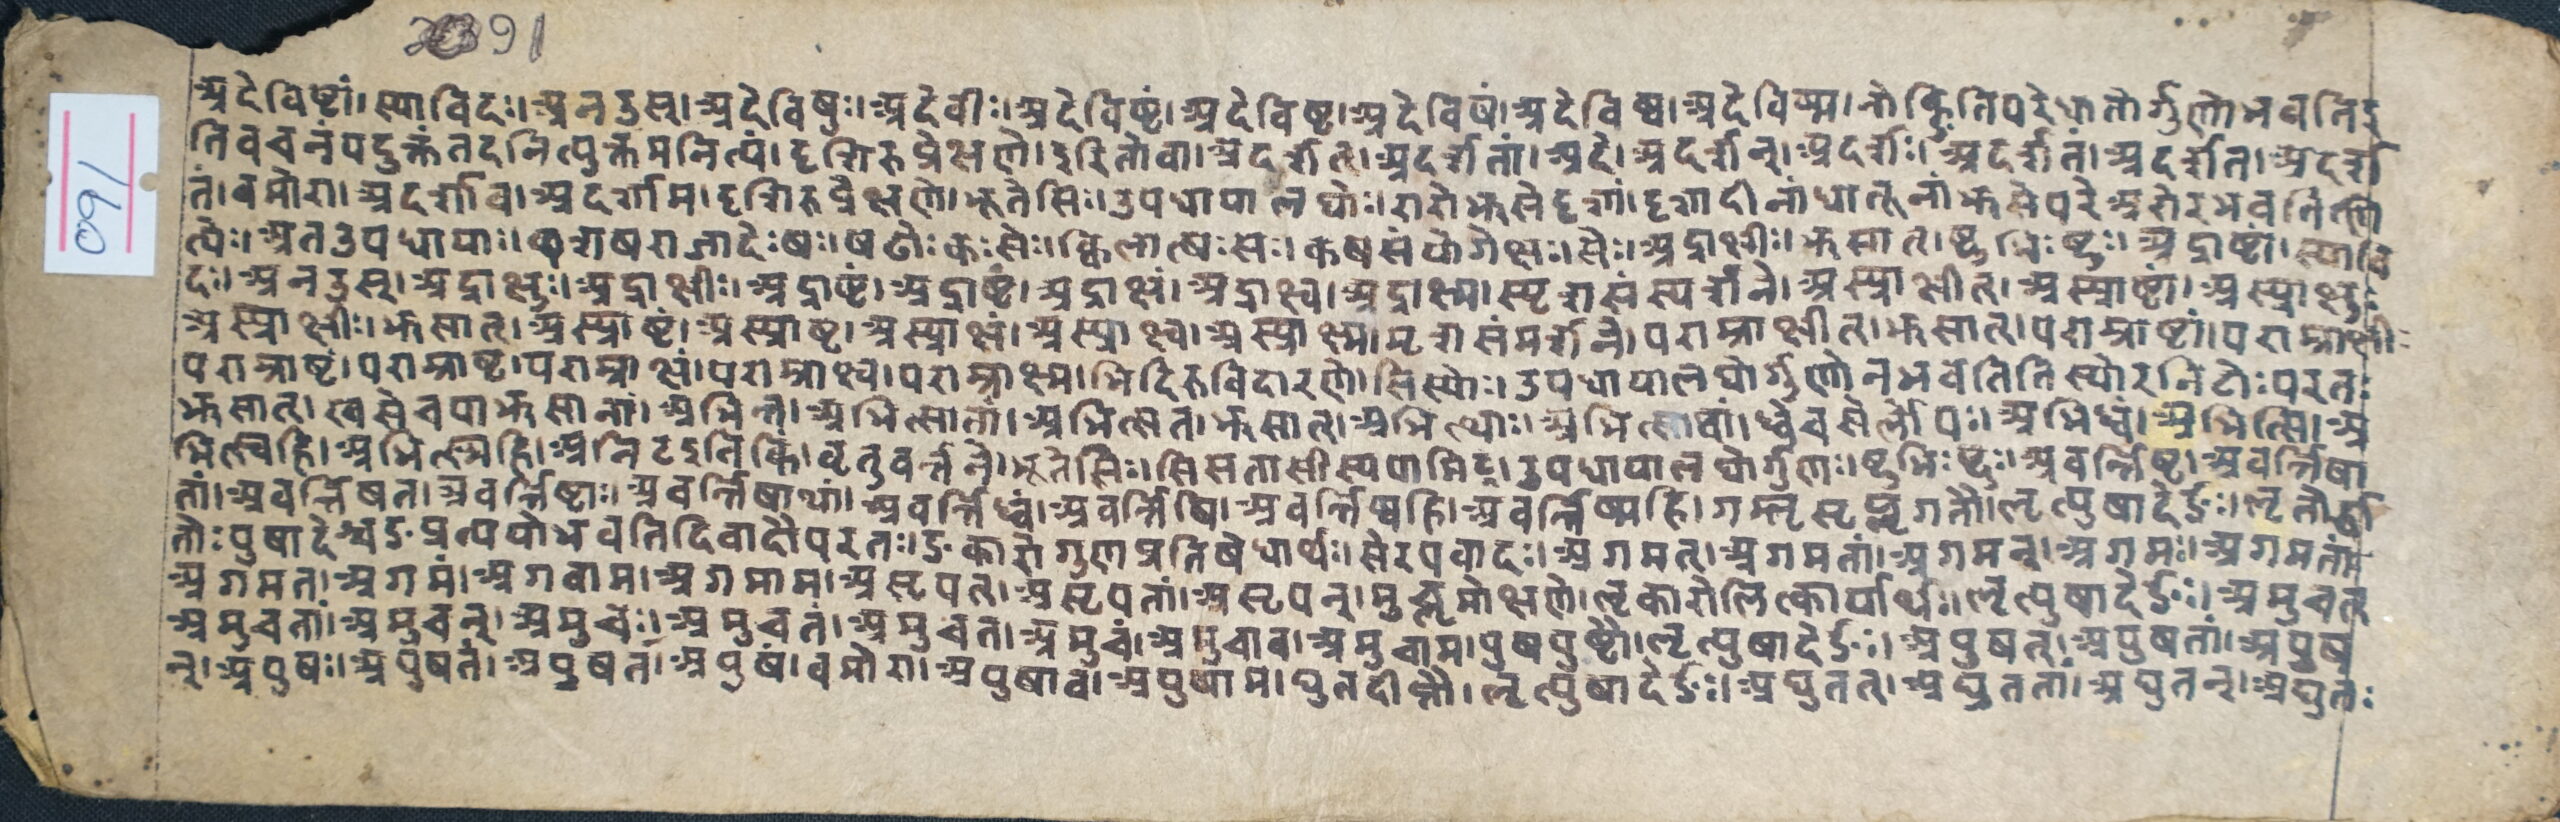 391
160
अदेविष्टां। स्याविदः। अन उस्। अदेविषुः। अदेवीः। अदेविष्टं। अदेविष्ट। अदेविषं। अदेविष्व। अदेविष्म। परे धातोर्गुणो भवति इ
ति वचनं यदुक्तं तदनित्यु क्तमनित्यं। दृशिरु प्रेक्षणे। इरितो वा। अदर्शत्। अदर्शतां। अदे। अदर्शन्। अदर्शः। अदर्शतं। अदर्शत। अदर्श
तं। वमोरा। अदर्शाव। अदर्शाम। दृशिरु प्रेक्षणे। भूते सिः। उपधाया लघोः। रारो झसे दृशां। दृशादीनां धातूनां झसे परे अरो र भवति
त्यैः। अत उपधायाः। छशषराजादेः षः। षढोः कः से। क्विलात्षः सः। कषसंयोगे क्षः। सेः। अद्राक्षीः। झसात्। ष्टुभिः ष्टुः। अद्राष्टां। स्यावि
दः। अन उस्। अद्राक्षुः। अद्राक्षीः। अद्राष्टं। अद्राष्ट। अद्राक्षं। अद्राक्ष्व। अद्राक्ष्म। स्पृश संस्पर्शने। अस्प्राक्षीत्। अस्प्राष्टां। अस्प्राक्षुः
अस्प्राक्षीः। झसात्। अस्प्राष्टं। अस्प्राष्ट। अस्प्राक्षं। अस्प्राक्ष्व। अस्प्राक्ष्म। मृश संमर्शने। पराम्राक्षीत्। झसात्। पराम्राष्टां। पराम्राक्षीः
पराम्राष्टं। पराम्राष्ट। पराम्राक्षं। पराम्राक्ष्व। पराम्राक्ष्म। भिदिरु विदारणे। सिस्योः। उपधाया लघोर्गुणो न भवति सिस्योरनिटोः परतः
झसात्। खसे चपा झसानां। अभित्त। अभित्सातां। अभित्सत। झसात्। अभित्थाः। अभित्साथां। ध्वे च सेर्लोपः। अभिध्वं। अभित्सि। अ
भित्स्वहि। अभित्स्महि। अनिट इति किं। वृतु वर्त्तने। भूते सिः। सिसतासीस्यपामिट्। उपधाया लघोर्गुणः। ष्टुभिः ष्टुः। अवर्त्तिष्ट। अवर्त्तिषा
तां। अवर्त्तिषत। अवर्त्तिष्टाः। अवर्त्तिषाथां। अवर्त्तिध्वं। अवर्त्तिषि। अवर्त्तिष्वहि। अवर्त्तिष्महि। गम्लृ सृप्लृ गतौ। लृत्पुषादेर्ङः। लृतो
तोः पुषादेश्च ङप्रत्ययो भवति दिवादौ परतः। ङकारो गुणप्रतिषेधार्थः। सेरपवादः। अगमत्। अगमतां। अगमन्। अगमः। अगमतं
अगमत। अगमं। अगमाव। अगमाम। असृपत्। असृपतां। असृपन्। मुच्लृ मोक्षणे। लृकारो लित्कार्यार्थः। लृत्पुषादेर्ङः। अमुचत्
अमुचतां। अमुचन्। अमुचः। अमुचतं। अमुचत। अमुचं। अमुचाव। अमुचाम। पुष पुष्टौ। लृत्पुषादेर्ङः। अपुषत्। अपुषतां। अपुष
न्। अपुषः। अपुषतं। अपुषत। अपुषं। वमोरा। अपुषाव। अपुषाम। द्युत दीप्तौ। लृत्पुषादेर्ङः। अद्युतत्। अद्युततां। अद्युतन्। अद्युतः